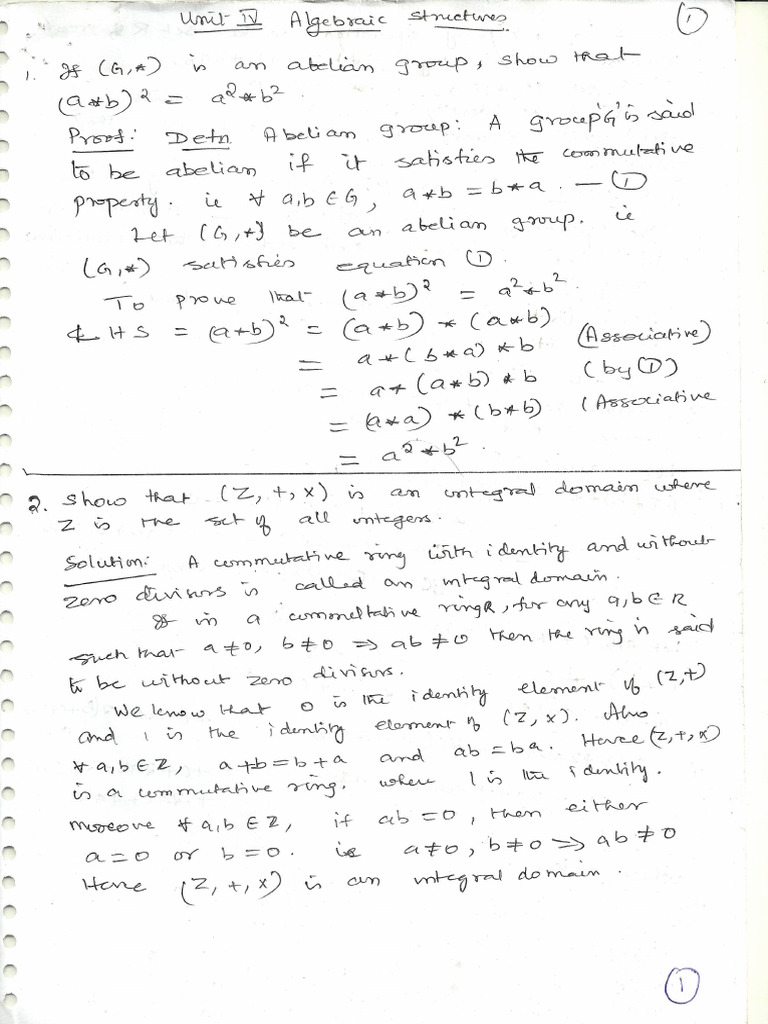 Unit-IV Algebraic structures. 1
1. If (G,*) is an abelian group, show that
(a*b)² = a²*b²
Proof: Defn Abelian group: A group 'G' is said
to be abelian if it satisfies the commutative
property. ie ∀ a,b ∈ G, a*b = b*a. — ①
Let (G,*) be an abelian group. ie
(G,*) satisfies equation ①.
To prove that (a*b)² = a²*b².
LHS = (a*b)² = (a*b) * (a*b)
= a*(b*a)*b (Associative)
= a*(a*b)*b (by ①)
= (a*a)*(b*b) (Associative
= a²*b².
2. Show that (Z,+,×) is an integral domain where
Z is the set of all integers.
Solution: A commutative ring with identity and without
zero divisors is called an integral domain.
If in a commutative ring R, for any a,b ∈ R
such that a≠0, b≠0 ⇒ ab≠0 then the ring is said
to be without zero divisors.
We know that 0 is the identity element of (Z,+)
and 1 is the identity element of (Z,×). Also
∀ a,b ∈ Z, a+b=b+a and ab=ba. Hence (Z,+,×)
is a commutative ring. where 1 is the identity.
Moreove ∀ a,b ∈ Z, if ab=0, then either
a=0 or b=0. ie a≠0, b≠0 ⇒ ab≠0
Hence (Z,+,×) is an integral domain.
1